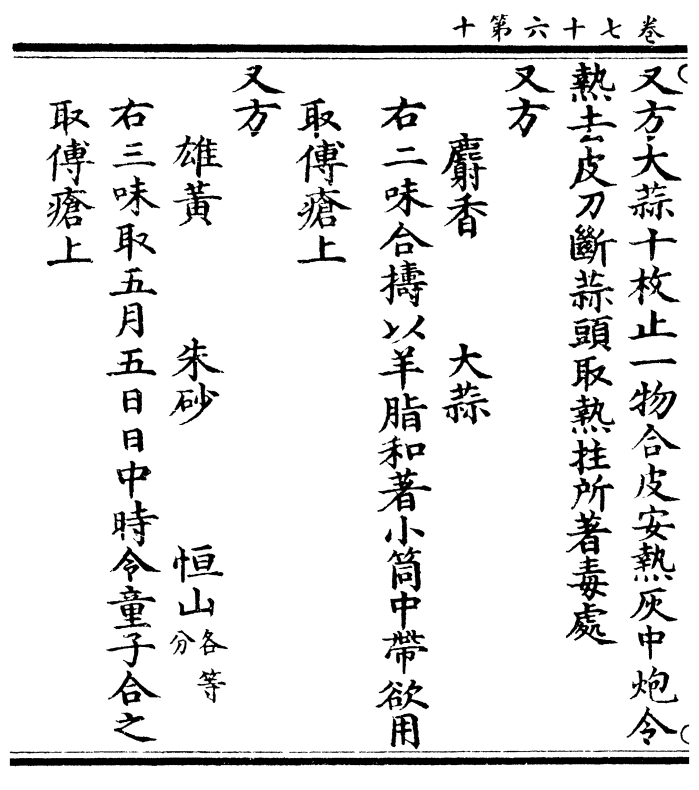 卷七十六第十
又方大蒜十枚止一物合皮安熱灰中炮令
熱去皮刀斷蒜頭取熱拄所著毒處
又方
麝香 大蒜
右二味合擣以羊脂和著小筒中帶欲用
取傅瘡上
又方
雄黃 朱砂 恒山各等分
右三味取五月五日日中時令童子合之
取傅瘡上